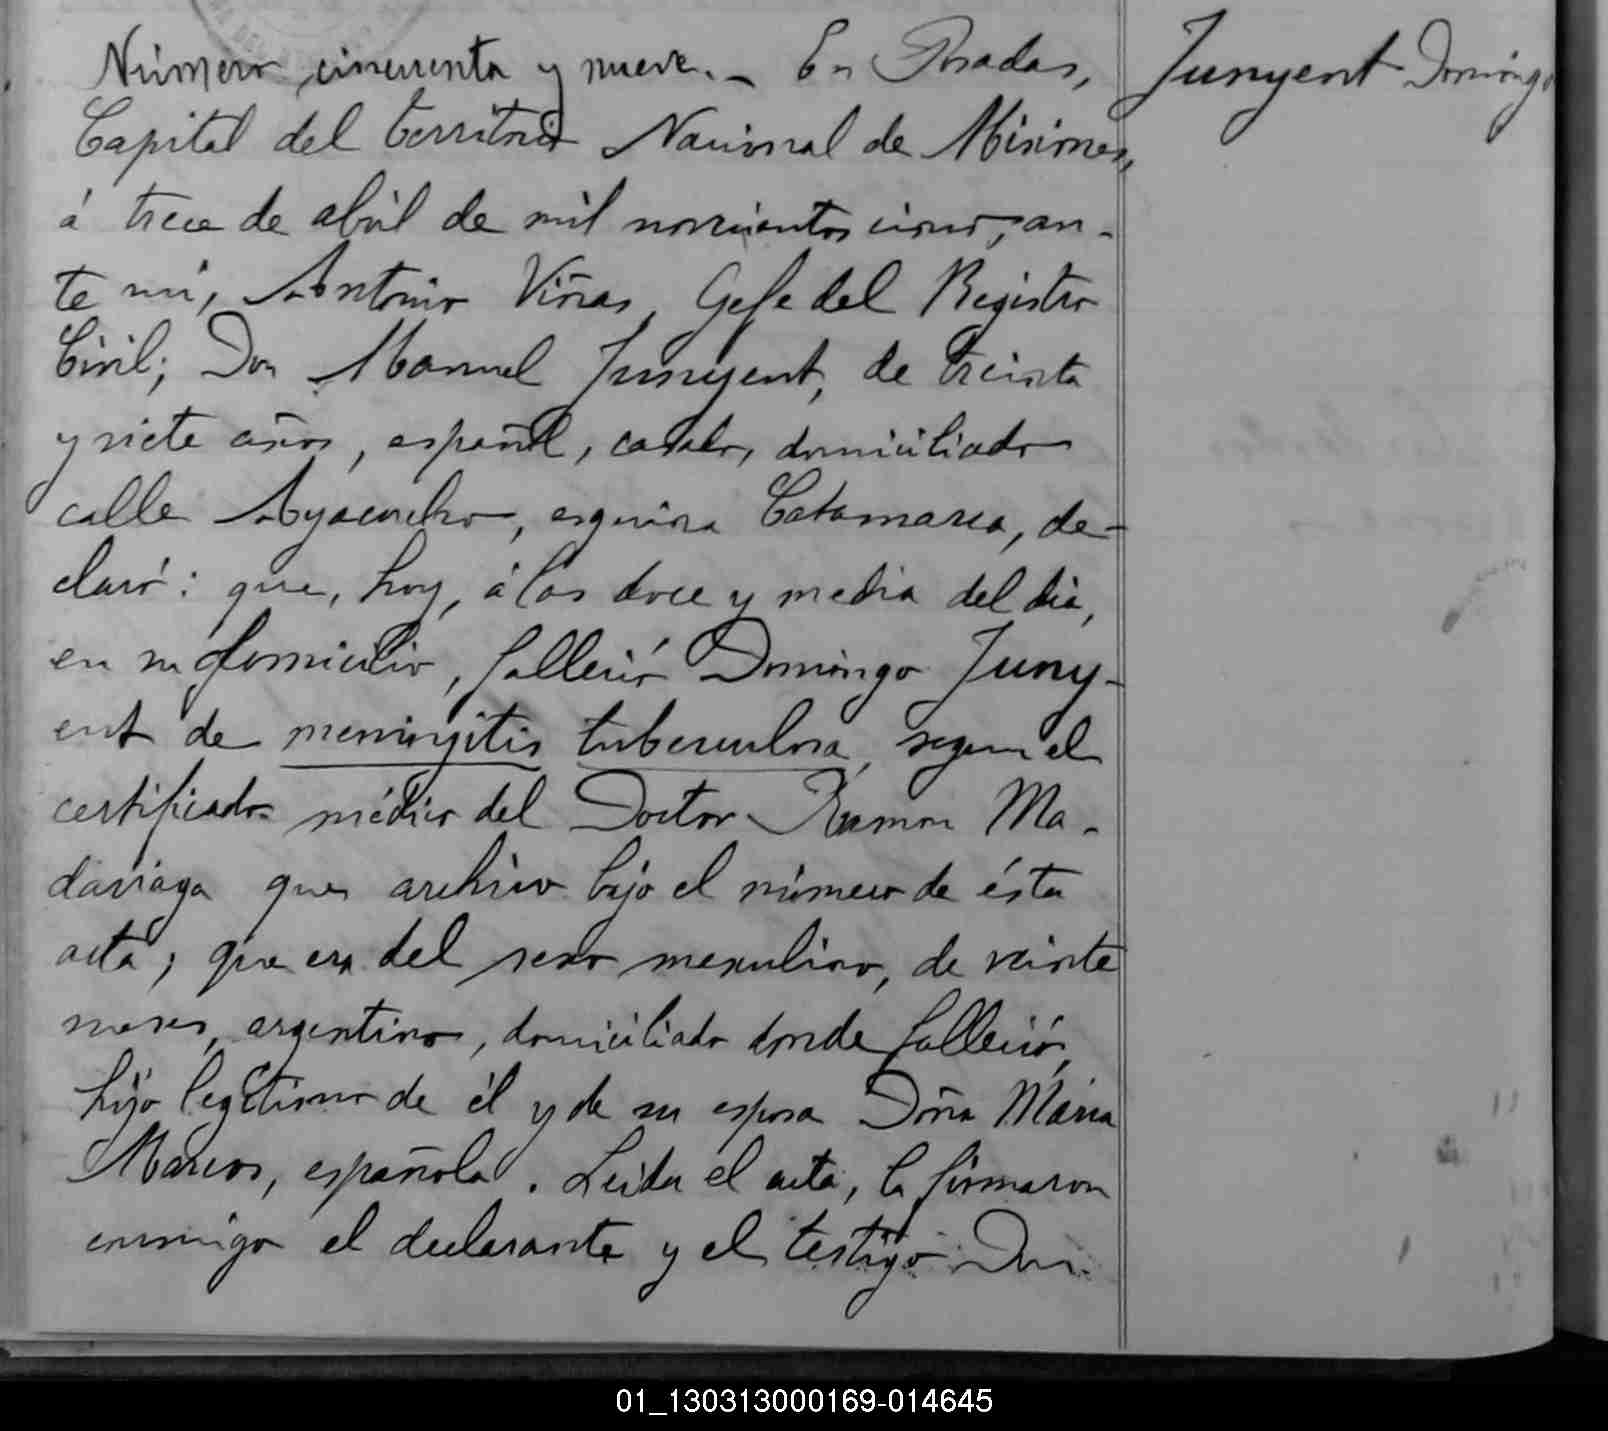 Número cincuenta y nueve. – En Posadas,
Junyent Domingo
Capital del territorio Nacional de Misiones,
á trece de abril de mil novecientos cinco, an-
te mi, Antonio Viñas, Gefe del Registro
Civil; Don Manuel Junyent, de treinta
y siete años, español, casado, domiciliado
calle Ayacucho, esquina Catamarca, de-
claró: que, hoy, á las doce y media del dia,
en su domicilio, falleció Domingo Juny-
ent de meningitis tuberculosa, segun el
certificado médico del Doctor Ramon Ma-
dariaga que archivo bajo el número de ésta
acta; que era del sexo masculino, de veinte
meses, argentino, domiciliado donde falleció,
hijo legítimo de él y de su esposa Doña Maria
Marcos, española. Leida el acta, la firmaron
conmigo el declarante y el testigo Don
01_130313000169-014645